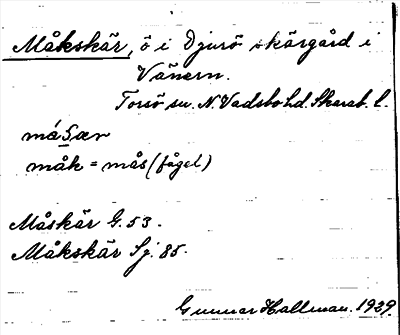 Måkskär, ö i Djurö skärgård i
Vänern.
Torsö sn. N. Vadsbo hd. Skarab. l.
måSær
måk = mås (fågel)
Måskär G. 53.
Måkskär Sj. 85.
Gunnar Hallman. 1929.